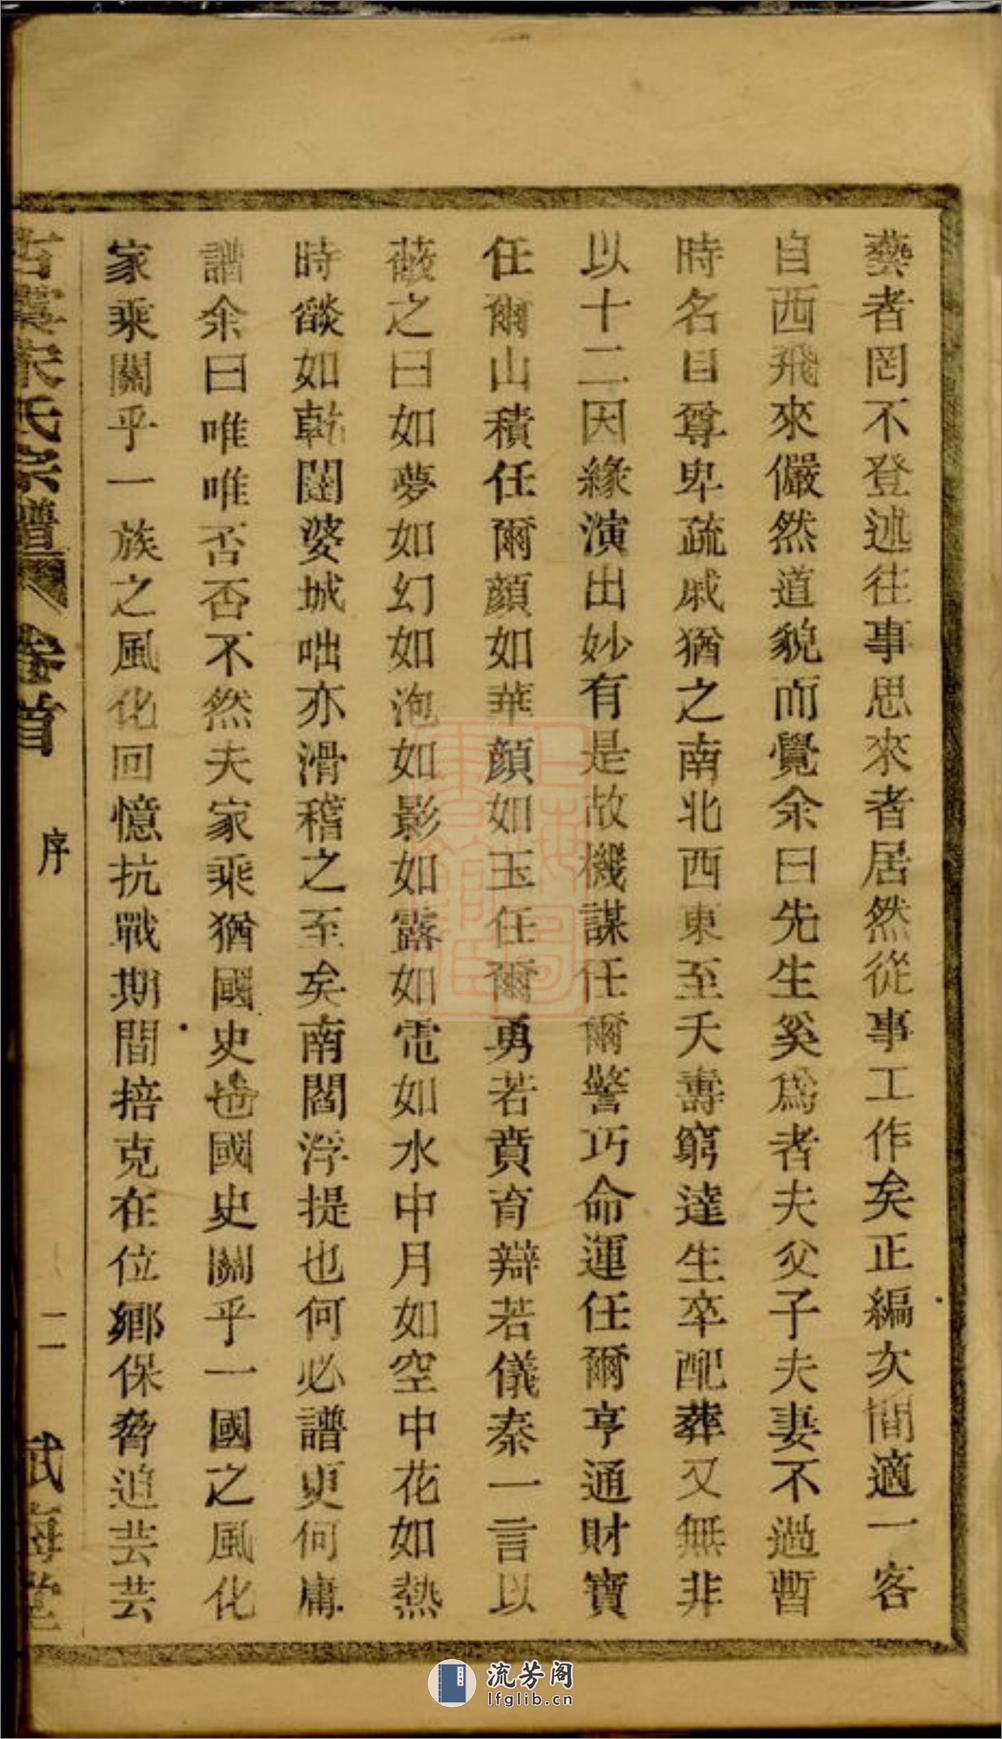 藝者罔不登述往事思來者居然從事工作矣正編次間適一客
自西飛來儼然道貌而覺余曰先生奚為者夫父子夫妻不過暫
時名目尊卑疏戚猶之南北西東至夭壽窮達生卒配葬又無非
以十二因緣演出妙有是故機謀任爾警巧命運任爾亨通財寶
任爾山積任爾顏如華顏如玉任爾勇若賁育辯若儀秦一言以
蔽之曰如夢如幻如泡如影如露如電如水中月如空中花如熱
時燄如乾闥婆城咄亦滑稽之至矣南閻浮提也何必譜更何庸
譜余曰唯唯否否不然夫家乘猶國史也國史關乎一國之風化
家乘關乎一族之風化回憶抗戰期間掊克在位鄉保脅迫芸芸
宋氏宗譜 卷首 序 二
流芳阁
lfglib.cn